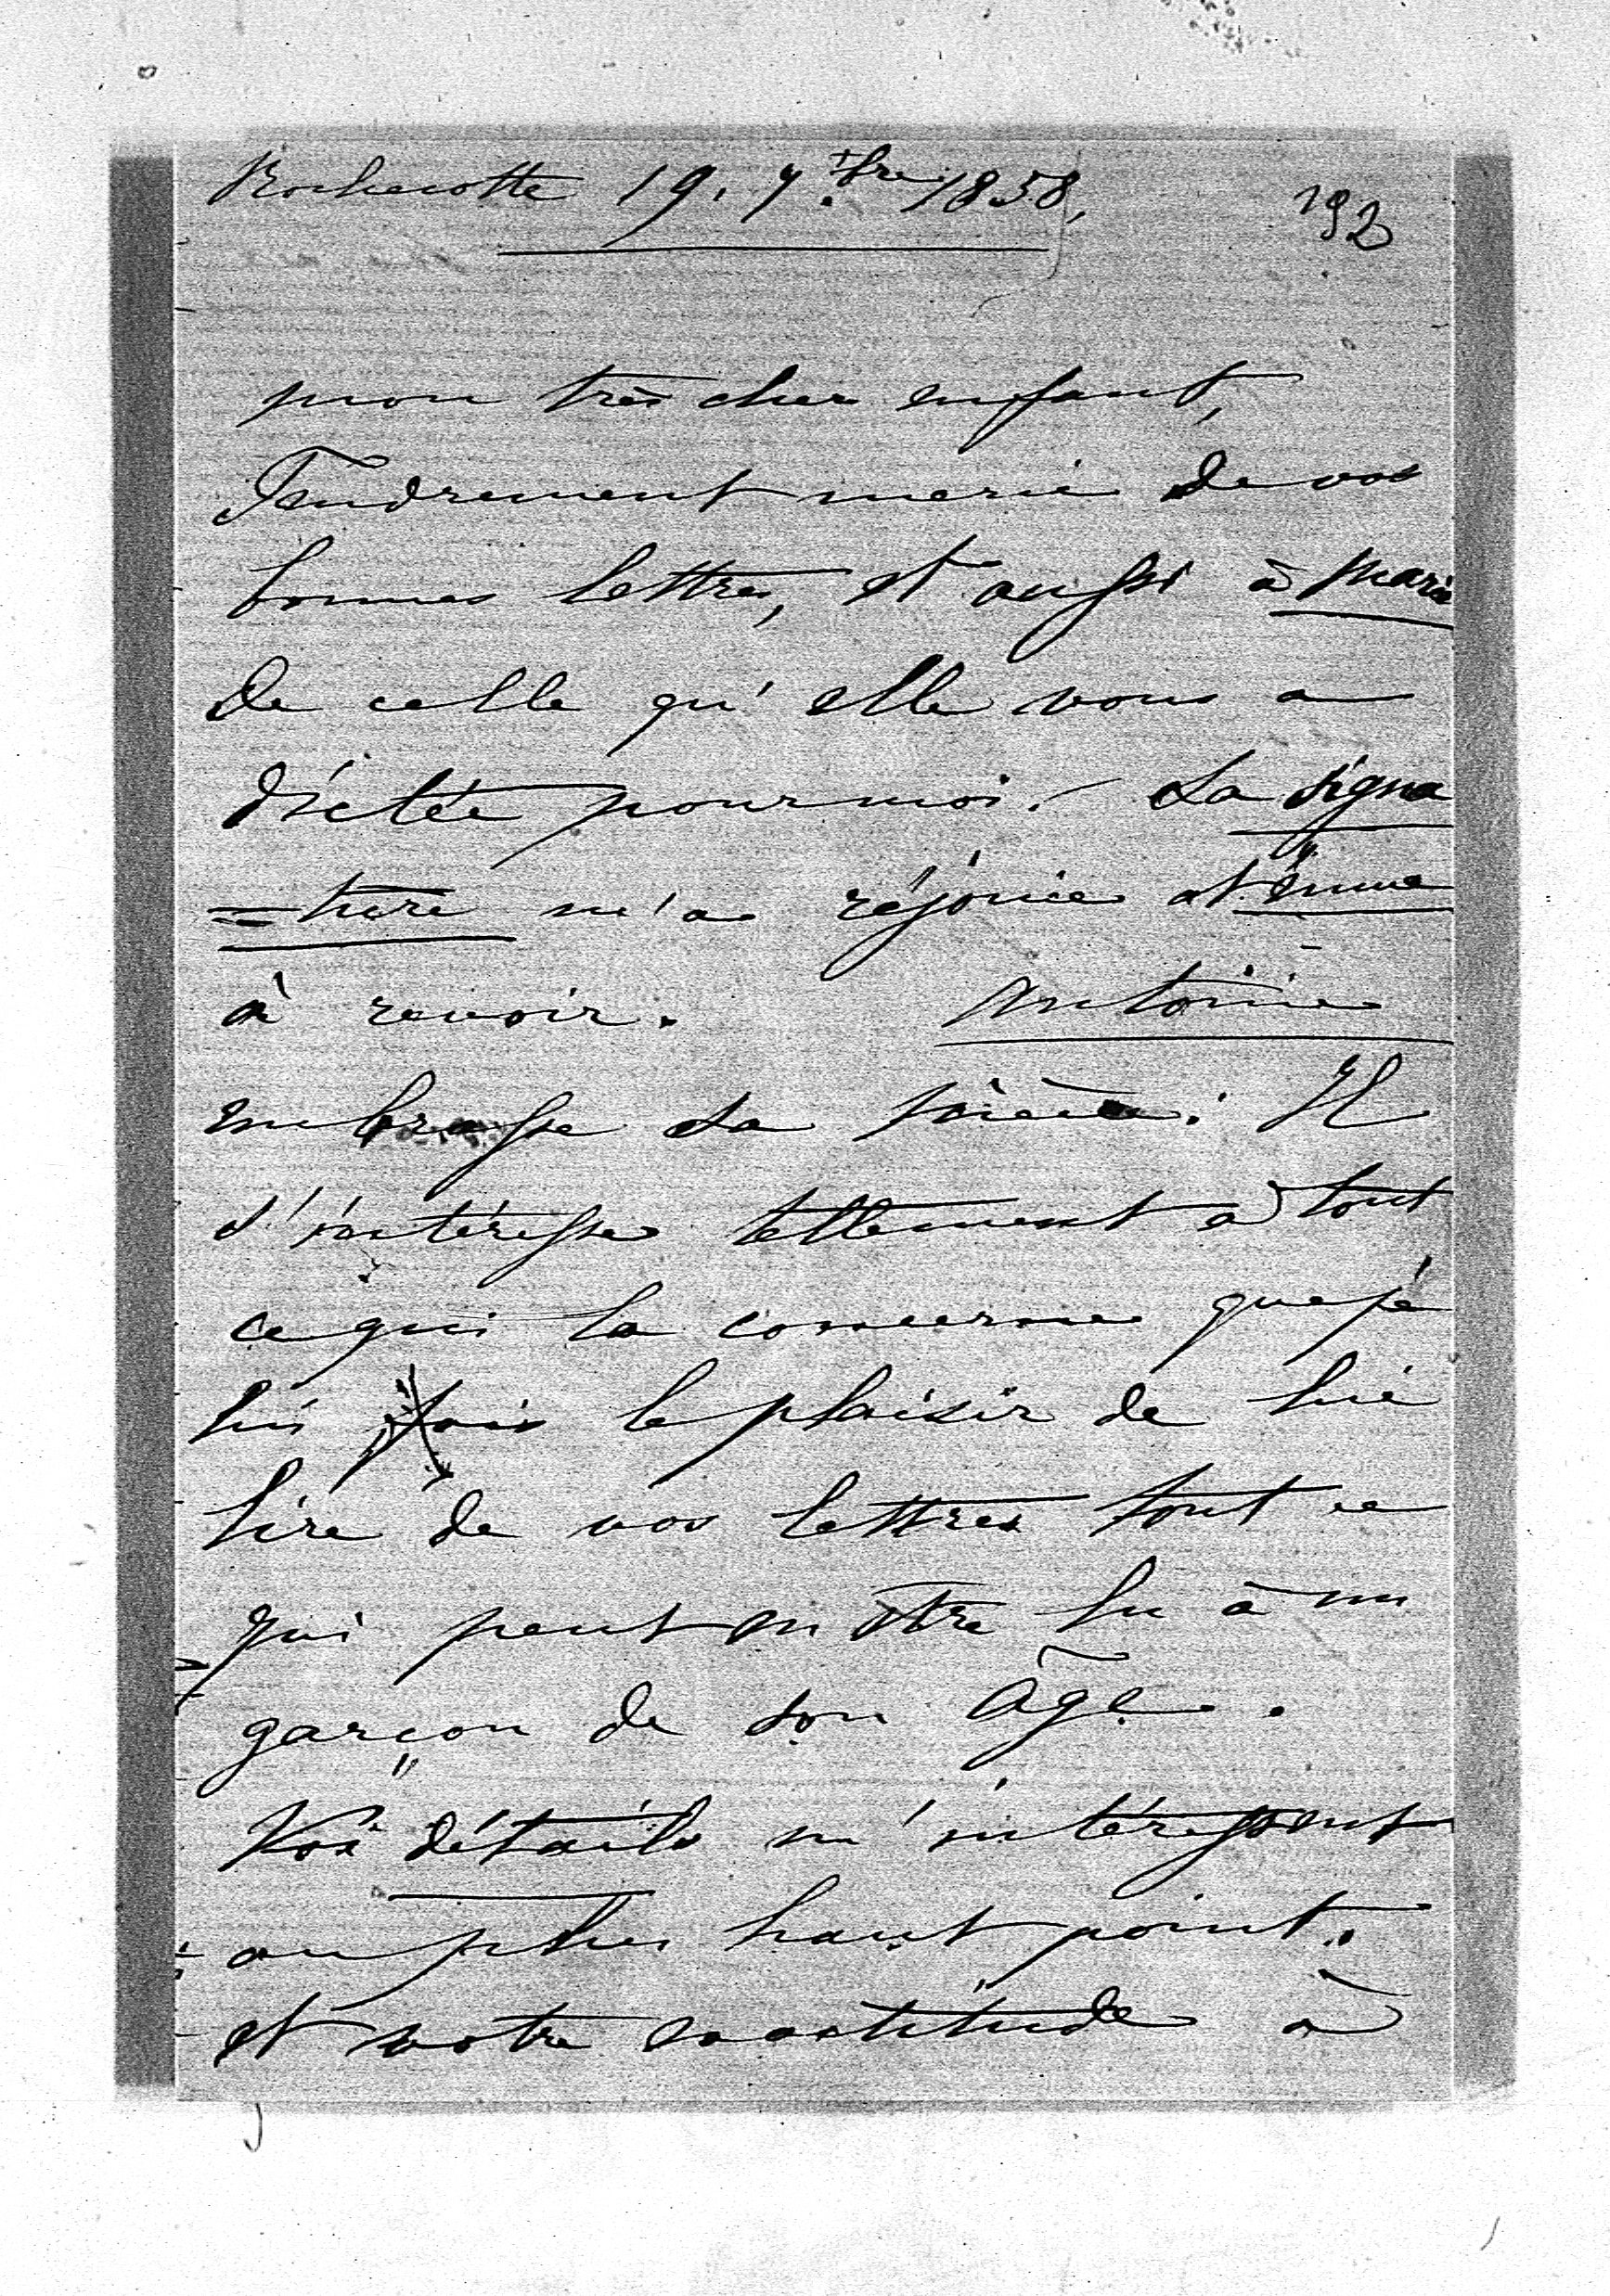 Rochecotte 19. 7.bre 1858, 192
mon très cher enfant,
Tendrement merci de vos
bonnes lettres, et aussi à Marie
de celle qu'elle vous a
dictée pour moi. La signa
=ture m'a réjouie et émue
à revoir. Antoine
embrasse sa : Il
s'intéresse tellement à tout
ce qui la concerne que je
lui fais le plaisir de lui
lire de vos lettres tout ce
qui peut en être lu à un
garçon de son âge.
Vos détails m'intéressent
au plus haut point.
et votre exactitude à